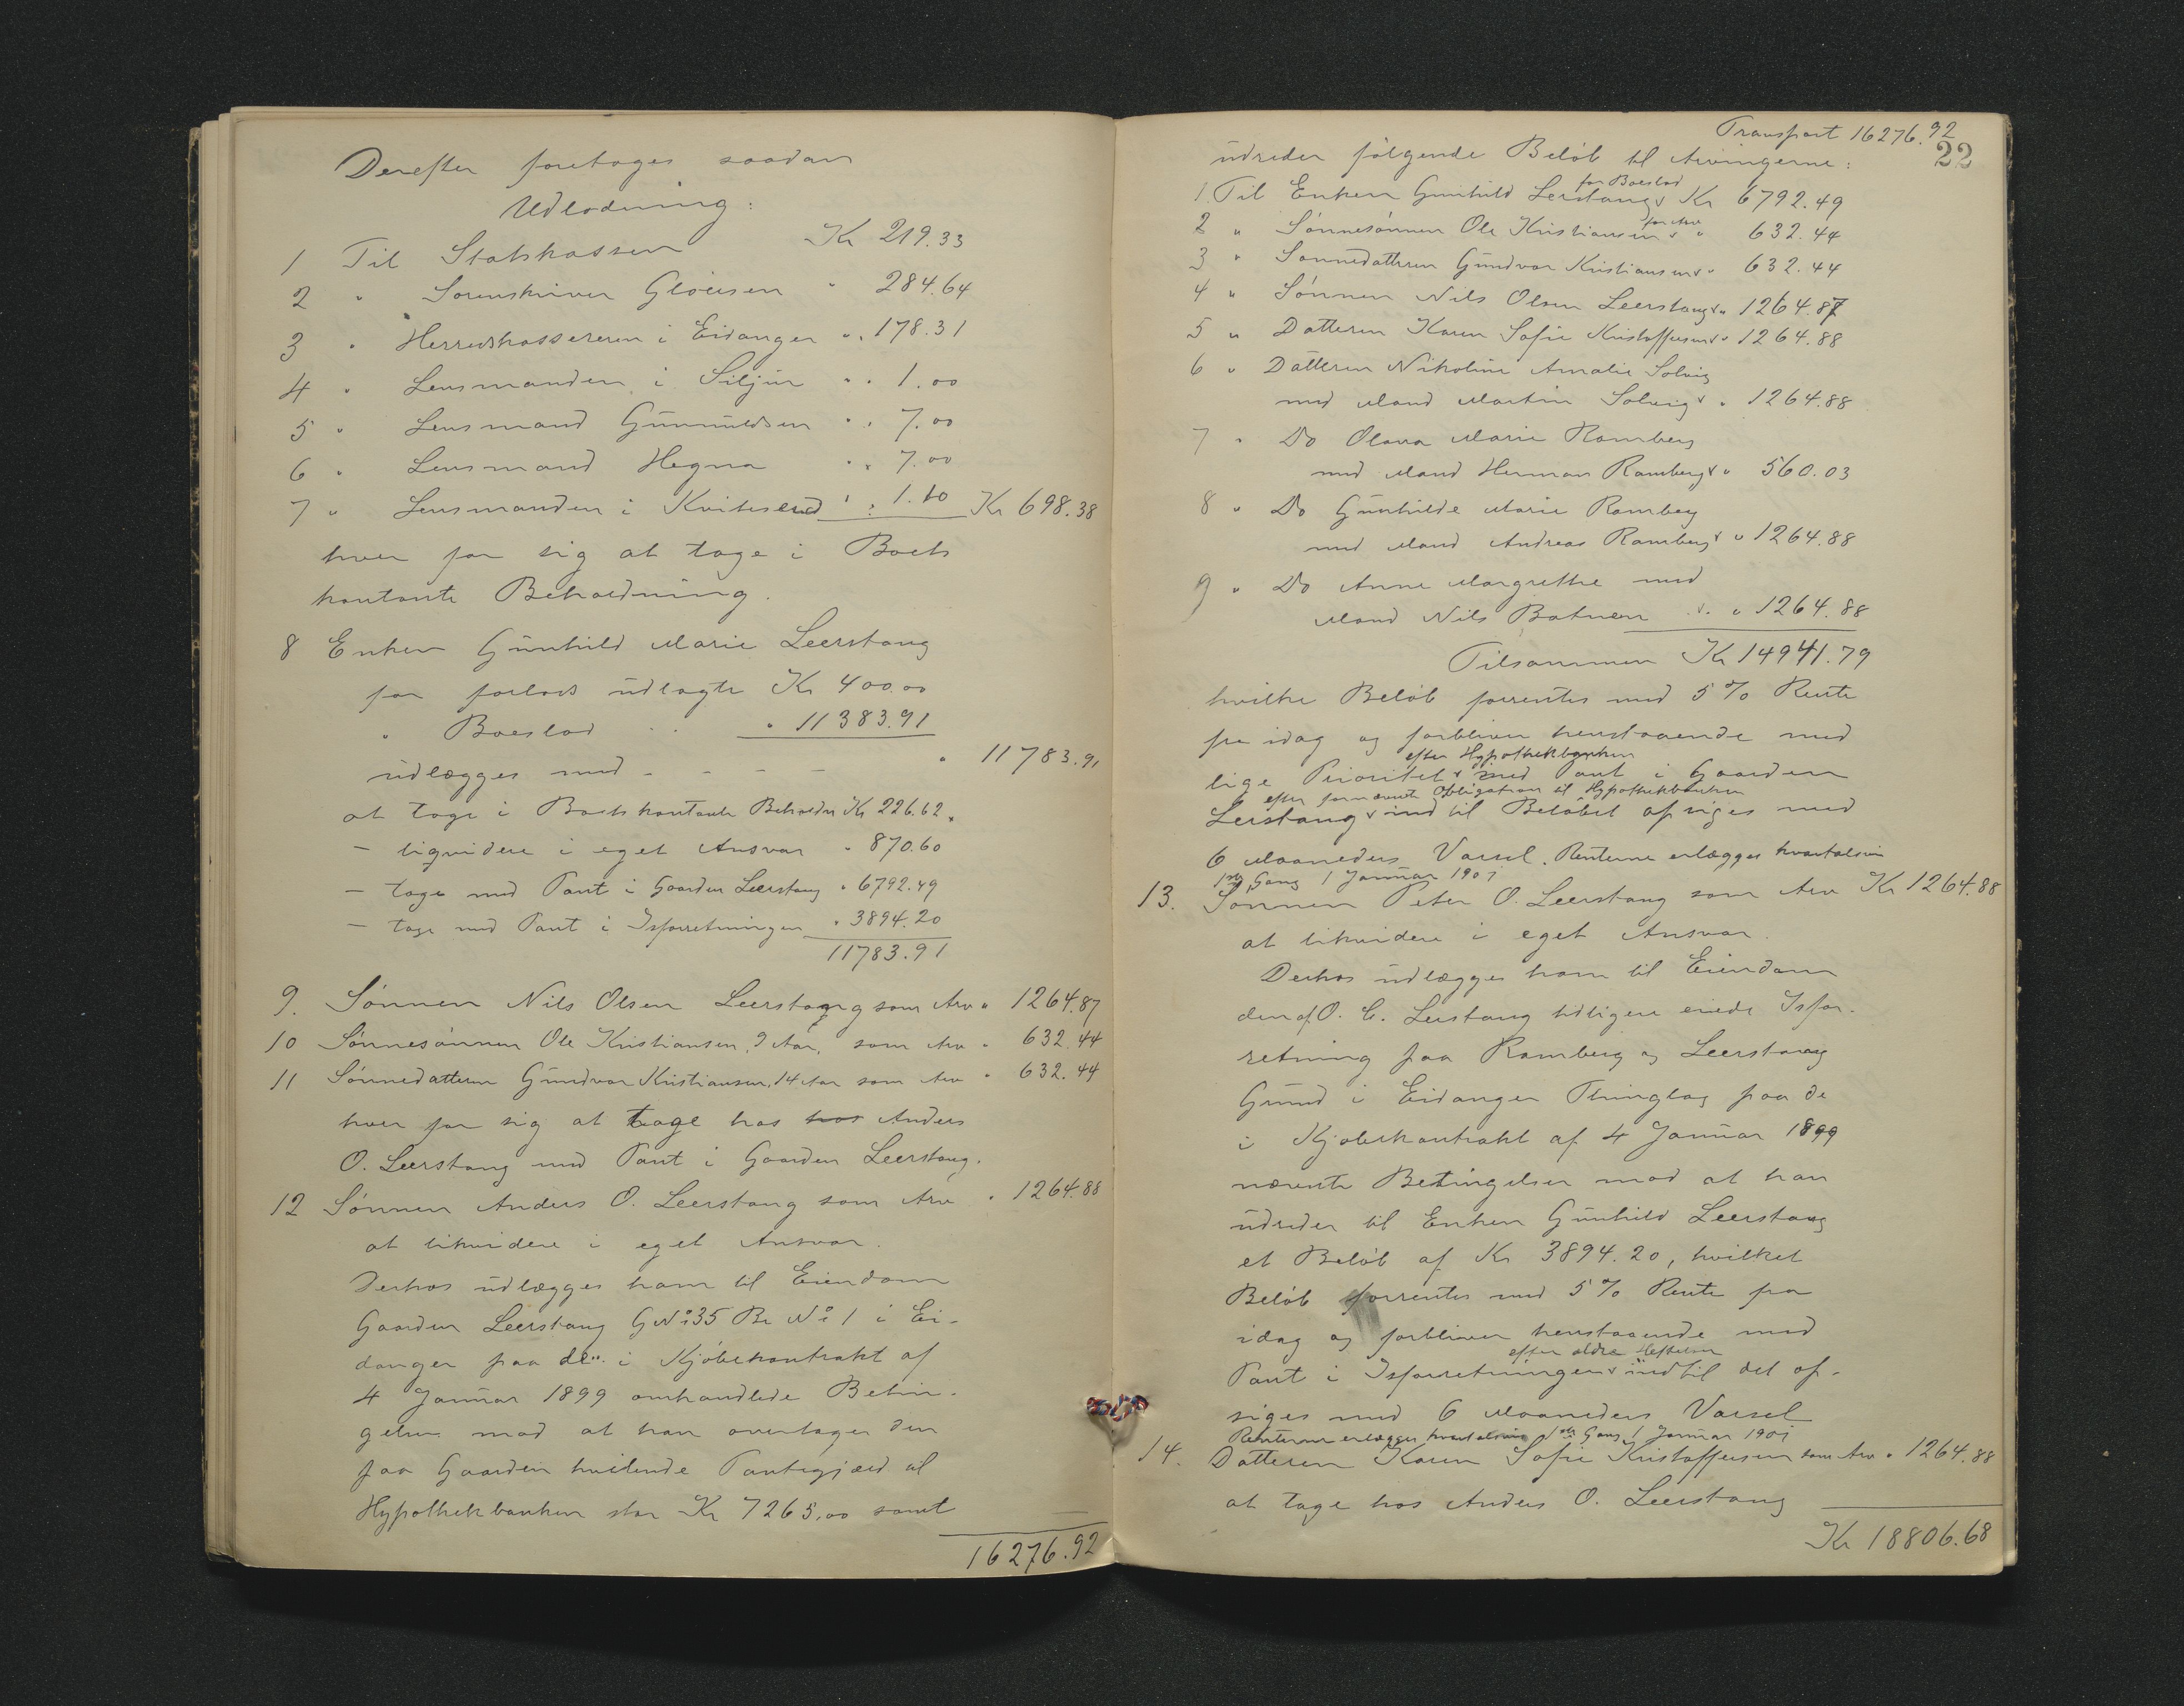 Derefter foretages saadan
Udlodning:
1 Til Statskassen Kr 219.33
2 " Sorenskriver Gløersen " 284.64
3 " Herredskassereren i Eidanger " 178.31
4 " Lensmanden i Siljan " 1.00
5 " Lensmand Gunnuldsen " 7.00
6 " Lensmand Hegna " 7.00
7 " Lensmanden i Kviteseid " 1.10 Kr 698.38
hver for sig at tage i Boets
kontante Beholdning.
8 Enken Gunhild Marie Leerstang
for forlods udlagte Kr 400.00
" Boeslod " 11383.91
udlægges med - - - - " 11783.91
at tage i Boets kontante Beholdn Kr 226.62.
- liqvidere i eget Ansvar " 870.60
- tage med Pant i Gaarden Leerstang " 6792.49
- tage med Pant i Isforretningen " 3894.20
11783.91
9. Sønnen Nils Olsen Leerstang som Arv " 1264.87
10 Sønnesønnen Ole Kristiansen, 9 Aar, som Arv " 632.44
11 Sønnedatteren Gundvor Kristiansen, 14 Aar som Arv " 632.44
hver for sig at tage hos hos Anders
O. Leerstang med Pant i Gaarden Leerstang.
12 Sønnen Anders O. Leerstang som Arv " 1264.88
at likvidere i eget Ansvar.
Derhos udlægges ham til Eiendom
Gaarden Leerstang G No 35 Br No 1 i Ei-
danger paa de i Kjøbekontrakt af
4 Januar 1899 omhandlede Betin-
gelser mod at han overtager den
paa Gaarden hvilende Pantegjæld til
Hypothekbanken stor Kr 7265,00 samt
16276.92
Transport 16276.92
22
udreder følgende Beløb til Arvingerne:
for Boeslod
1. Til Enken Gunhild Leerstang Kr 6792.49
for Arv
2 " Sønnesønnen Ole Kristiansen " 632.44
3 " Sønnedatteren Gundvor Kristiansen " 632.44
4 " Sønnen Nils Olsen Leerstang " 1264.87
5 " Datteren Karen Sofie Kristoffersen " 1264.88
6 " Datteren Nikoline Amalie Solvig
med Mand Martin Solvig " 1264.88
7 " Do Olava Marie Ramberg
med Mand Herman Ramberg " 560.03
8 " Do Gunhilde Marie Ramberg
med Mand Andreas Ramberg " 1264.88
9 " Do Anne Margrethe med
Mand Nils Batnen " 1264.88
Tilsammen Kr 14941.79
hvilke Beløb forrentes med 5 % Rente
fra idag og forbliver henstaaende med
efter Hypothekbanken
lige Prioritet med Pant i Gaarden
efter fornævnte Obligation til Hypothekbanken
Leerstang indtil Beløbet opsiges med
6 Maaneders Varsel. Renterne erlægges kvartalsvis
1ste Gang 1 Januar 1901
13. Sønnen Peter O. Leerstang som Arv Kr 1264.88
at likvidere i eget Ansvar.
Derhos udlægges ham til Eiendom
den af O. C. Leerstang tidligere eiede Isfor-
retning paa Ramberg og Leerstang
Grund i Eidanger Thinglag paa de
i Kjøbekontrakt af 4 Januar 1899
nævnte Betingelser mod at han
udreder til Enken Gunhild Leerstang
et Beløb af Kr 3894.20, hvilket
Beløb forrentes med 5 % Rente fra
idag og forbliver henstaaende med
efter ældre Heftelser
Pant i Isforretningen indtil det op-
siges med 6 Maaneders Varsel
Renterne erlægges kvartalsvis 1ste Gang 1 Januar 1901
14. Datteren Karen Sofie Kristoffersen som Arv " 1264.88
at tage hos Anders O. Leerstang
Kr 18806.68